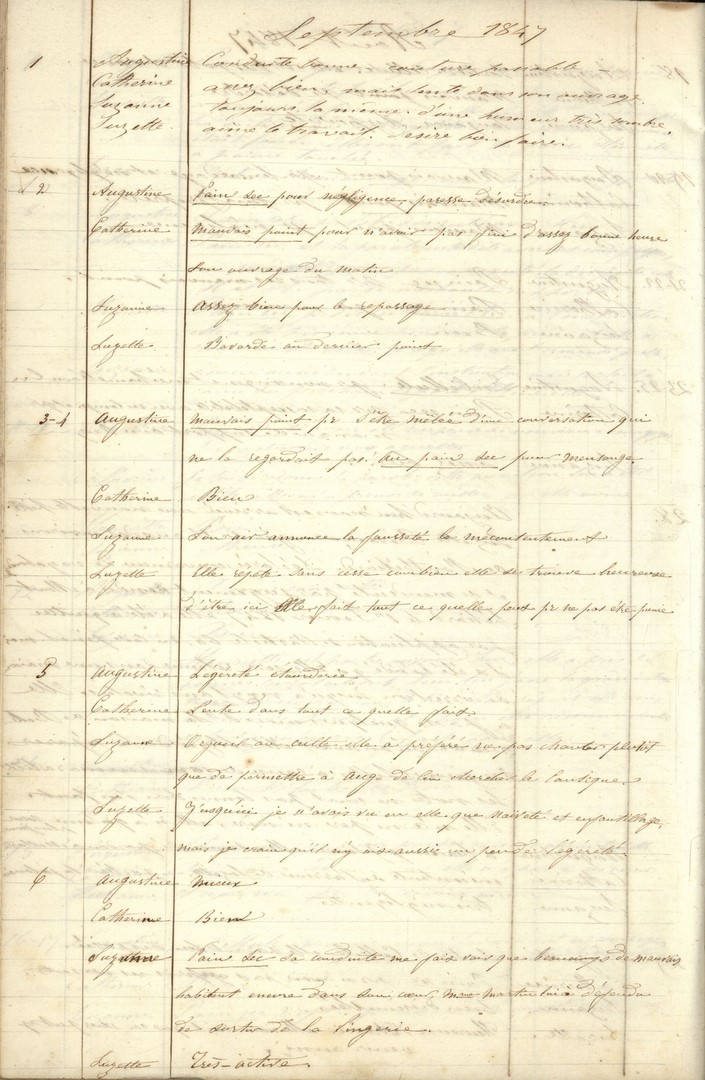 Septembre 1847
1 Augustine Conduite bonne, couture passable
Catherine assez bien, mais lente dans son ouvrage.
Suzanne toujours la même, d'une humeur très sombre,
Suzette. aime le travail. désire bien faire.
2 Augustine Pain sec pour négligence, paresse désordre.
Catherine Mauvais point pour n'avoir pas fini d'assez bonne heure
son ouvrage du matin
Suzanne Assez bien pour le repassage
Suzette Bavarde au dernier point
3-4 Augustine Mauvais point pr s'être mêlée d'une conversation qui
ne la regardait pas. Au pain sec pour mensonge.
Catherine Bien
Suzanne Son air annonce la fausseté le mécontentement
Suzette Elle répète sans cesse combien elle se trouve heureuse
d'être ici Elle fait tout ce quelle peut pr ne pas être punie
5 Augustine Légèreté étourderie
Catherine Lente dans tout ce quelle fait
Suzanne Orgueil au culte elle a préféré ne pas chanter plutôt
que de permettre à Ange de lui chercher le Cantique.
Suzette J'usqu'ici je n'avais vu en elle que naïveté et enfantillage,
mais je crains qu'il n'y ait aussi un peu de légèreté.
6 Augustine Mieux
Catherine Bien
Suzanne Pain sec sa conduite me fait voir que beaucoup de mauvais
habitent encore dans son cœur, lui a défendu
de sortir de la lingerie.
Suzette Très-active.